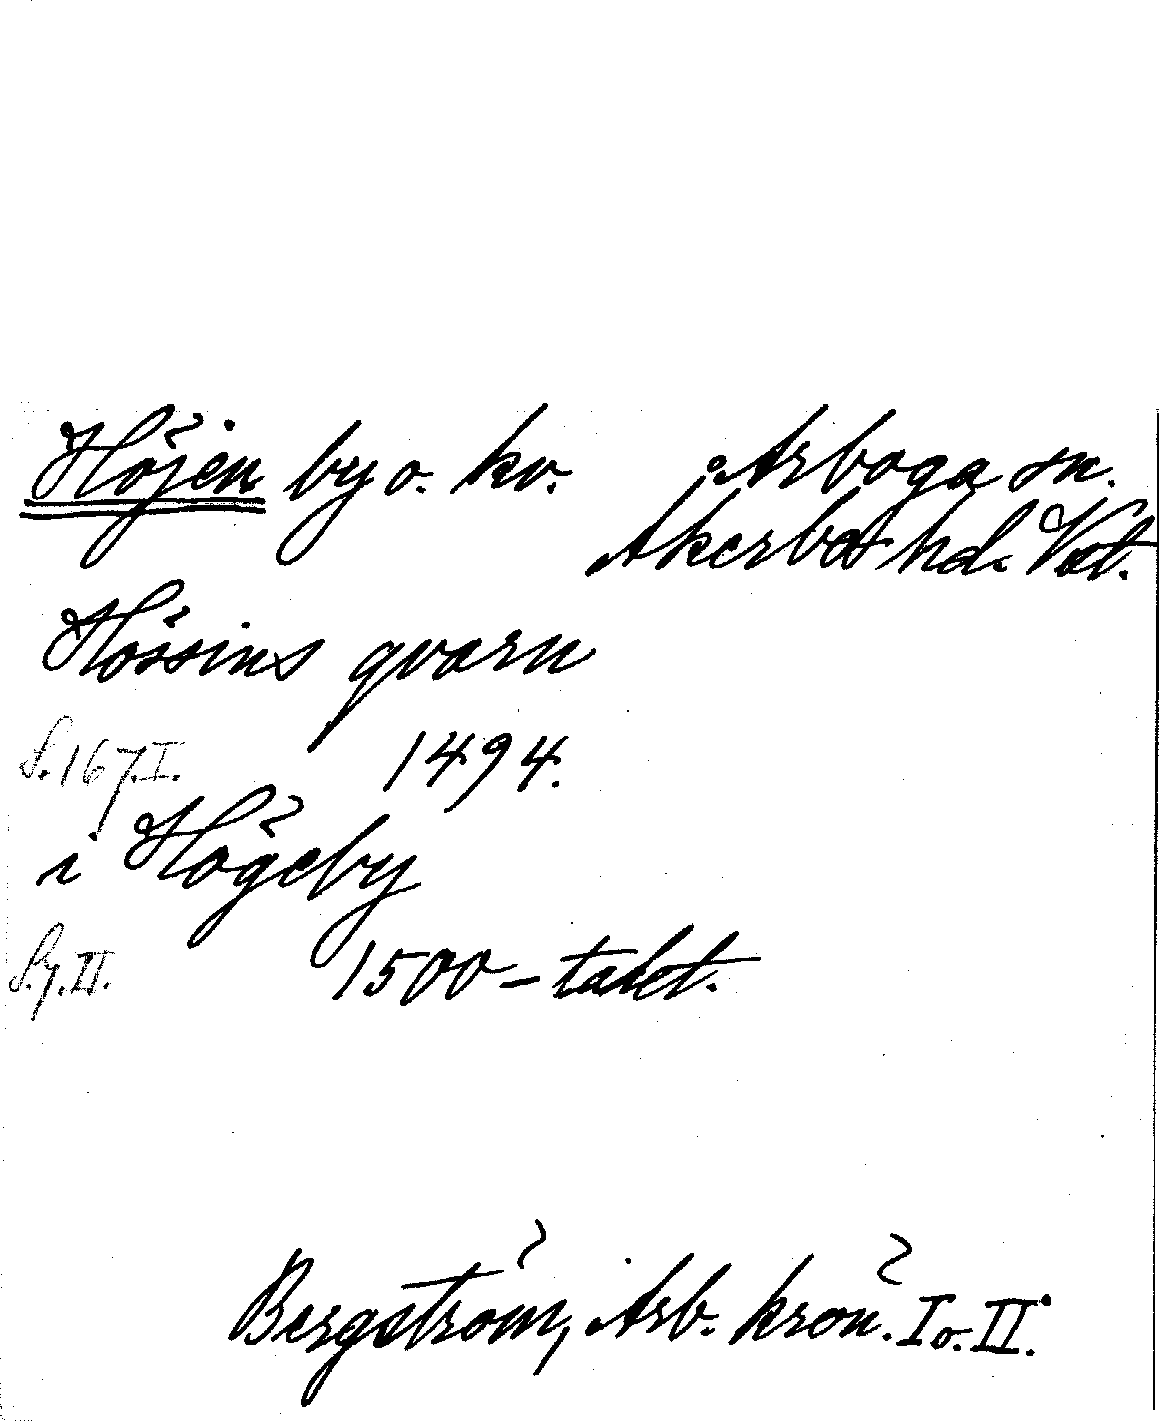 Höjen by o. kv. Arboga sn.
Åkerbo hd. Vstm.
Hössins qvarn
S. 167. I. 1494.
i Högeby
S. 7. II. 1500-talet.
Bergström, Arb. krön. I o. II.